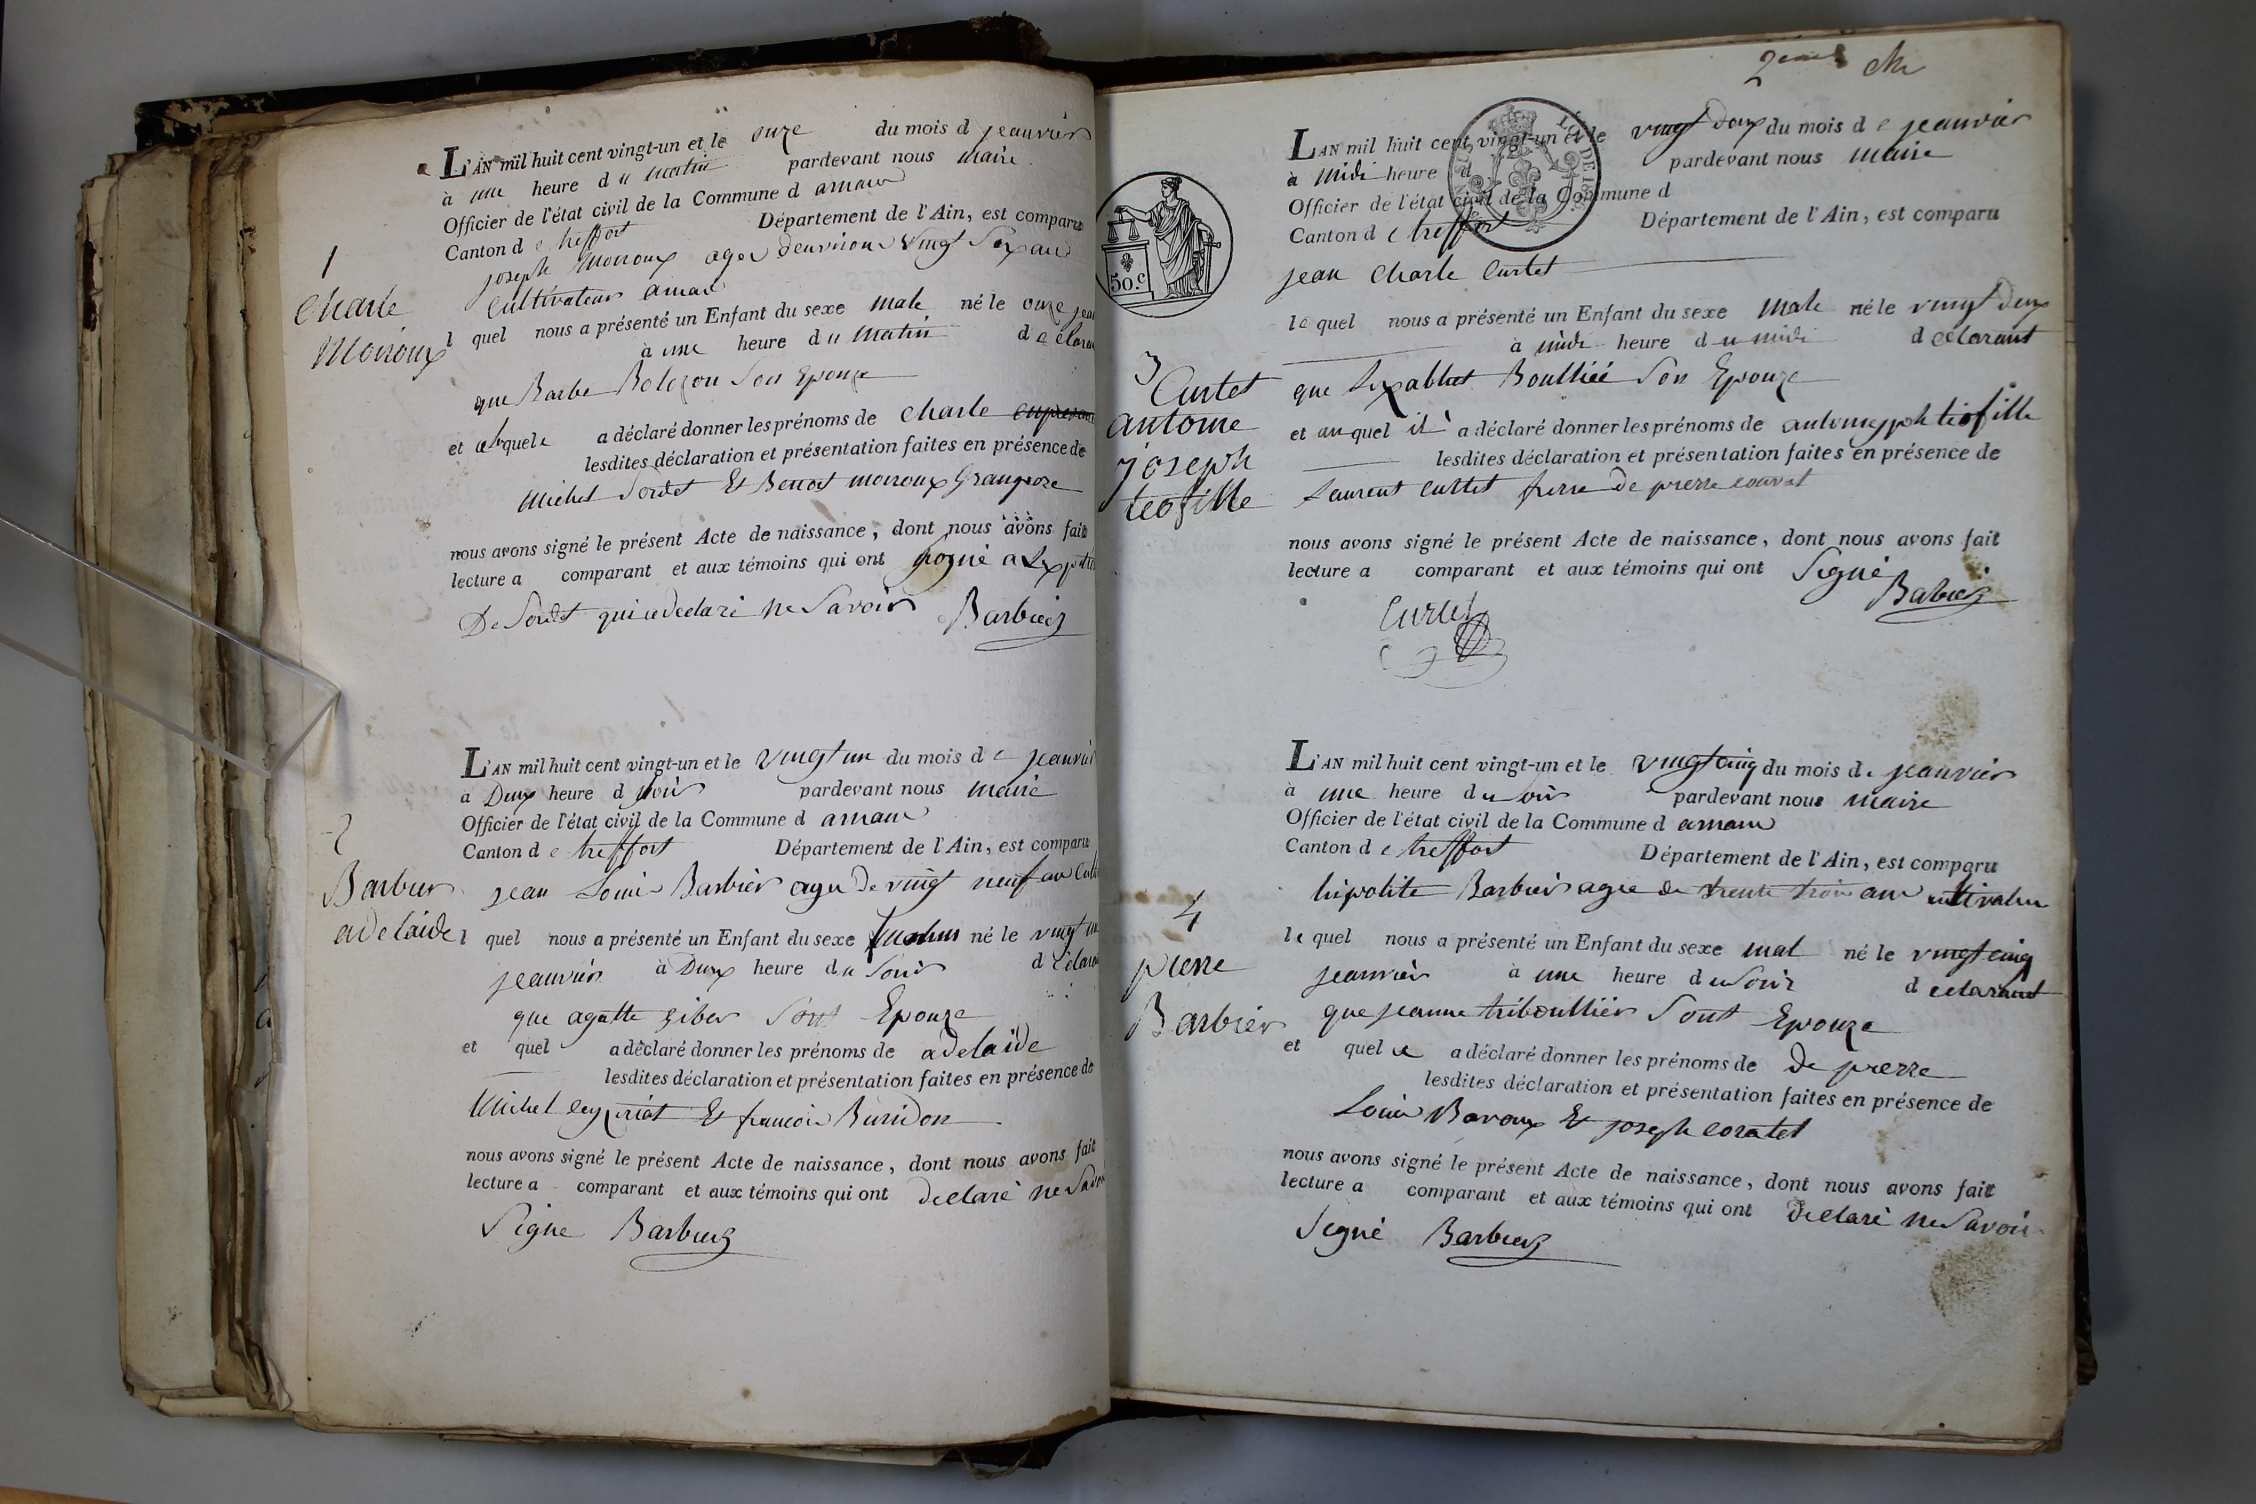 1
Charle
Moiroux
L'AN mil huit cent vingt-un et le onze du mois d jeanvier
à une heure du matin pardevant nous maire
Officier de l'état civil de la Commune d arnans
Canton de treffort Département de l'Ain, est comparu
joseph Moiroux agé d'environ vingt Six ans
Cultivateur
l quel nous a présenté un Enfant du sexe male né le onze
à une heure du matin
que Barbe Bolozon Son Epouze
et quel a déclaré donner les prénoms de Charle
lesdites déclaration et présentation faites en présence de
Michel Sordet Et Benoit moiroux
nous avons signé le présent Acte de naissance, dont nous avons fait
lecture a comparant et aux témoins qui ont
De Sordet qui a declaré ne Savoir Barbier
2
Barbier
adelaide
L'AN mil huit cent vingt-un et le vingt un du mois de jeanvier
à Deux heure d soir pardevant nous maire
Officier de l'état civil de la Commune d arnans
Canton de treffort Département de l'Ain, est comparu
jean Louis Barbier agé de vingt neuf an
l quel nous a présenté un Enfant du sexe né le vingt un
jeanvier à Deux heure du Soir
que agatte giber Sont Epouze
et quel a déclaré donner les prénoms de adelaide
lesdites déclaration et présentation faites en présence de
Michel Et francois Buridon
nous avons signé le présent Acte de naissance, dont nous avons fait
lecture a comparant et aux témoins qui ont declaré ne
Signe Barbier
2eme
50.C
3
Curtet
antoine
joseph
teofille
L'AN mil huit cent vingt-un et le vingt deux du mois de jeanvier
à midi heure d pardevant nous maire
Officier de l'état civil de la Commune d
Canton de treffort Département de l'Ain, est comparu
jean Charle Curtet
le quel nous a présenté un Enfant du sexe male né le vingt deux
à midi heure du midi declarant
que Boulliée Son Epouze
et au quel il a déclaré donner les prénoms de teofille
lesdites déclaration et présentation faites en présence de
Laurent curtet de pierre
nous avons signé le présent Acte de naissance, dont nous avons fait
lecture a comparant et aux témoins qui ont Signé
Barbier
Curtet
4
pierre
Barbier
L'AN mil huit cent vingt-un et le vingt cinq du mois de jeanvier
à une heure du soir pardevant nous maire
Officier de l'état civil de la Commune d arnans
Canton de treffort Département de l'Ain, est comparu
hipolite Barbier agée de trente trois ans cultivateur
le quel nous a présenté un Enfant du sexe mal né le vingt cinq
jeanvier à une heure du Soir declarant
que jeanne triboullier Sont Epouze
et quel a déclaré donner les prénoms de De pierre
lesdites déclaration et présentation faites en présence de
Louis Bavoux Et joseph coratet
nous avons signé le présent Acte de naissance, dont nous avons fait
lecture a comparant et aux témoins qui ont declaré ne Savoir
Signé Barbier